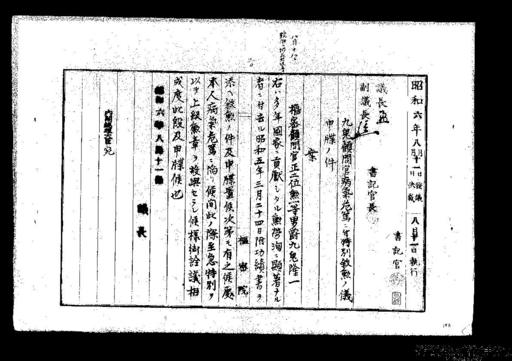 昭和六年八月十一日發議
八月十一日決裁
八月十一日執行
議長
副議長
書記官長
書記官
九鬼顧問官病氣危篤ニ付特別敍勲ノ儀
申牒ノ件
案
樞密顧問官正二位勲一等男爵九鬼隆一
右ハ多年國家ニ貢獻シタル勲勞洵ニ顯著ナル
者ニ付去ル昭和五年三月二十四日附功績書ヲ
添ヘ敍勲ノ件及申牒置候次第モ有之候處
本人病氣危篤ニ陥リ候間此ノ際至急特別ヲ
以テ上級勲章ヲ授與セラレ候樣御詮議相
成度此段及申牒候也
昭和六年八月十一日
議長
内閣總理大臣宛
樞密院